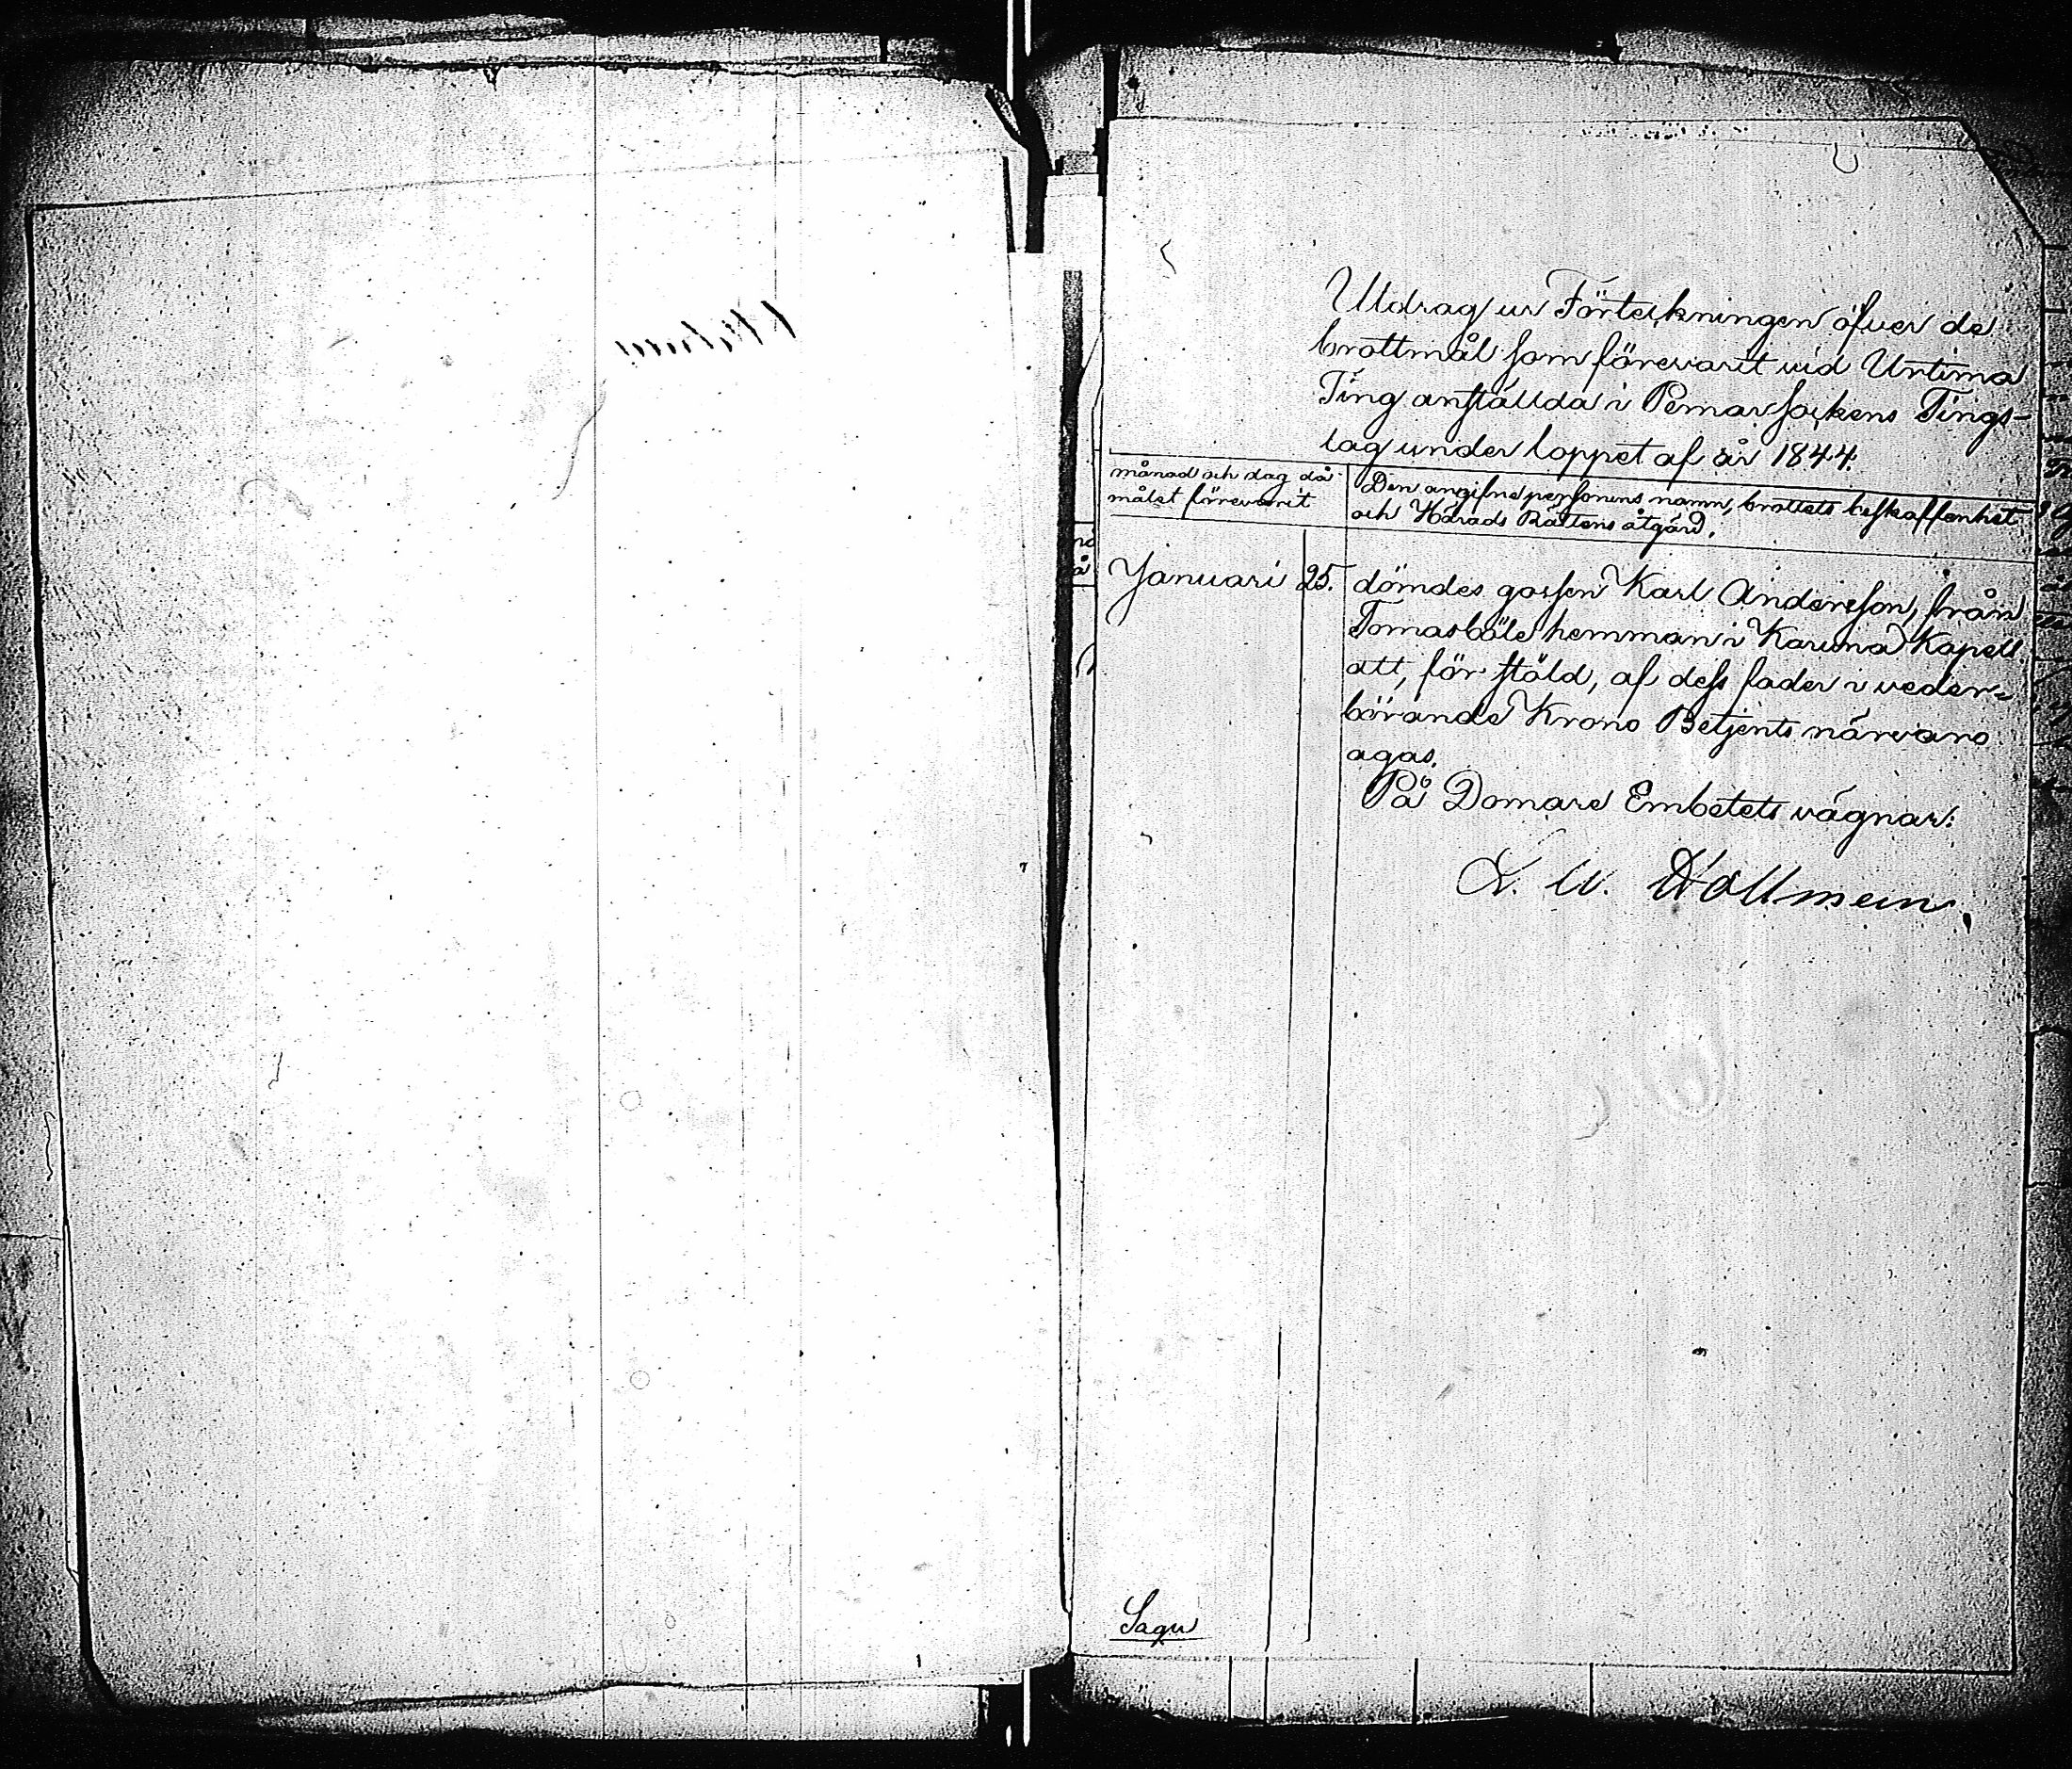 Utdrag ur Förteckningen öfver de
brottmål som förevarit vid Urtima
Ting anställda i Pemar sockens Tings-
lag under loppet af år 1844.
månad och dag då
målet förevarit
Den angifne personens namn, brottets beskaffenhet
och Härads Rättens åtgärd.
Januari 25.
dömdes gossen Karl Andersson, från
Tomasböle hemman i Karuna Kapell
att, för stöld, af dess fader i veder-
börande Krono Betjents närvaro
agas.
På Domare Embetets vägnar:
Sagu